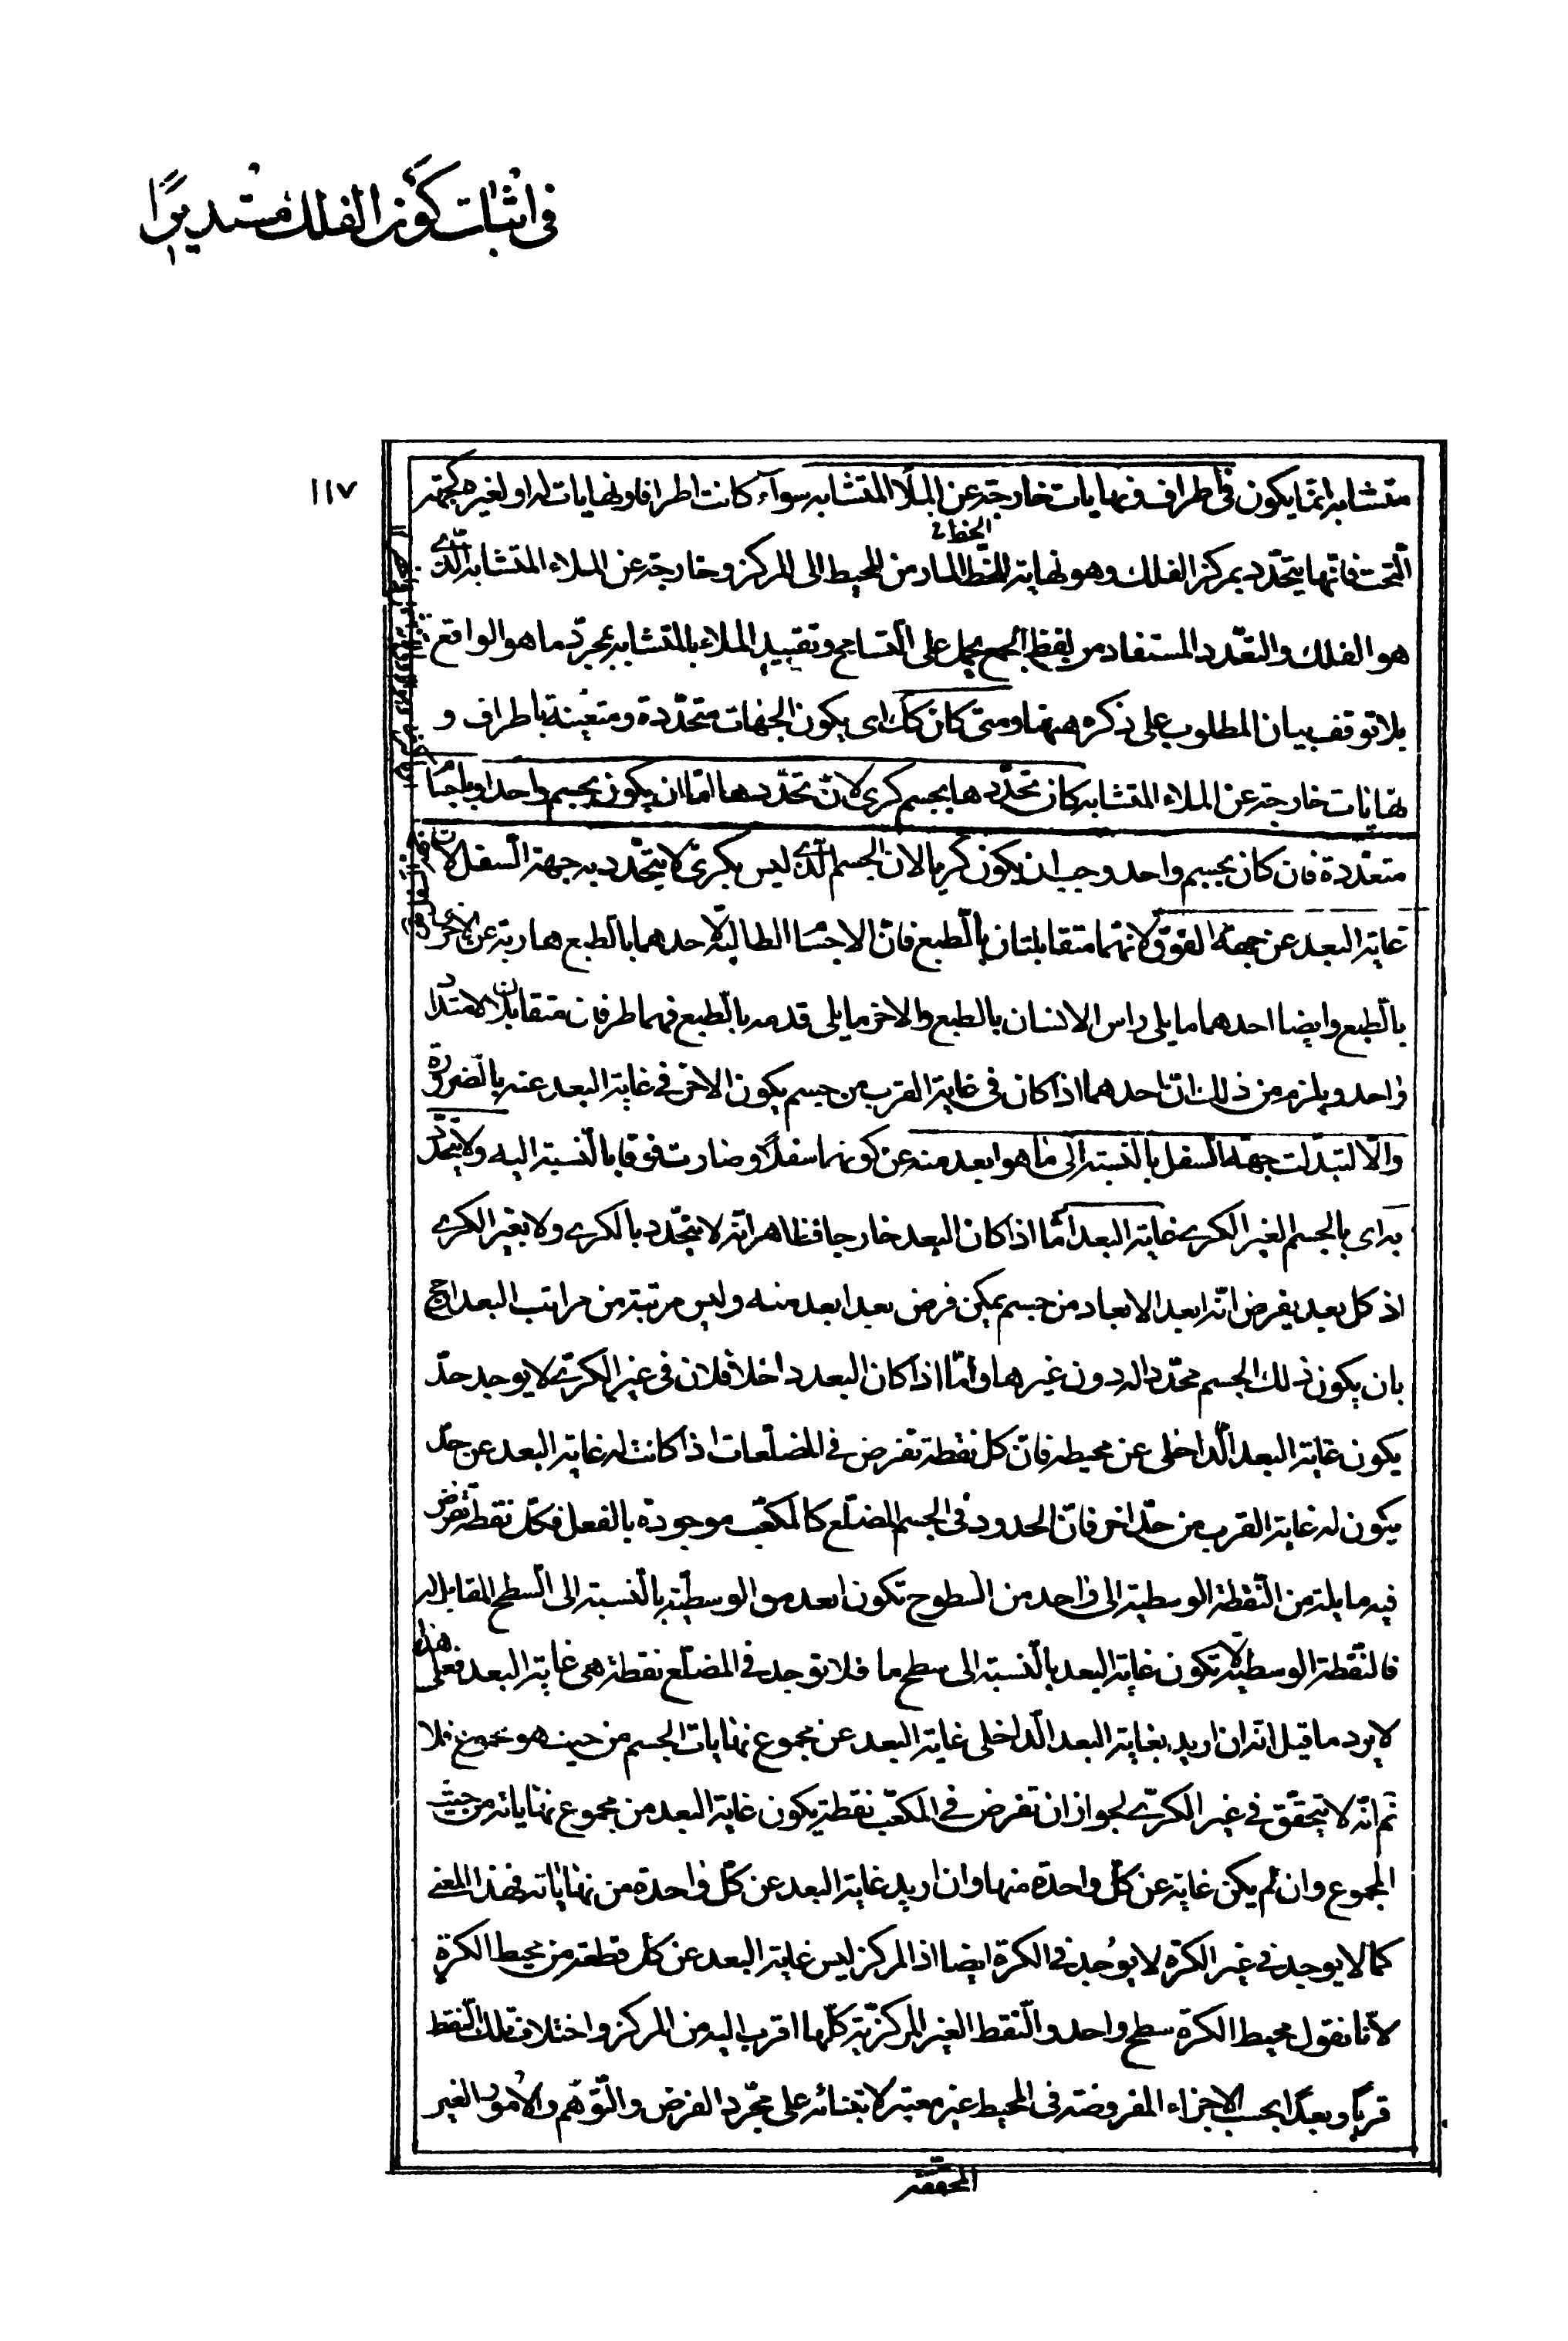 في اثبات كون الفلك مستديرًا
١١٧
متشابه انما يكون في اطراف ونهايات خارجة عن الملأ المتشابه سوآء كانت اطرافا ونهايات له او لغيره كجهة
الخط
التحت فانها يتحدّد بمركز الفلك وهو نهاية للخط المار من المحيط الى المركز وخارجة عن الملاء المتشابه الّذى
هو الفلك والتعّدد المستفاد من لفظ الجمع يحمل على التسامح وتقييد الملاء بالمتشابه بمجرّد ما هو الواقع
بلا توقف بيان المطلوب على ذكره ههنا ومتى كان كك اى يكون الجهات متحدّدة ومتعينة باطراف و
نهايات خارجة عن الملاء المتشابه كان تحدّدها بجسم كرى لانّ تحدّدها امّا ان يكون بجسم واحد او باجسًا
متعدّدة فان كان بجسم واحد وجب ان يكون كريا لان الجسم الّذى ليس بكرىّ لا يتحدّد به جهة السّفل لان
غاية البعد عن جهة الفوق لانهما متقابلتان بالّطبع فانّ الاجسا الطالبة لاحدهما بالطبع هاربة عن الاخر
بالّطبع وايضا احدهما ما يلى راس الانسان بالطبع والاخر ما يلى قدمه بالّطبع فهما طرفان متقابلان لامتداد
واحد ويلزم من ذلك انّ احدهما اذا كان فى غاية القرب من جسم يكون الاخر فى غاية البعد عنه بالضرورة
والّا لتبدّلت جهة السّفل بالنسبة الى ما هو ابعد منه عن كونها سفلًا وصارت فوقا بالنّسبة اليه ولا يتحدّد
به اى بالجسم الغير الكرى غاية البعد امّا اذا كان البعد خارجا فظاهر انه لا يتحّدد بالكرى ولا بغير الكرى
اذ كل بعد يفرض انه ابعد الابعاد من جسم يمكن فرض بعد ابعد منه وليس مرتبة من مراتب البعد احج
بان يكون ذلك الجسم محدّدا له دون غيرها وامّا اذا كان البعد داخلا فلان فى غير الكرىّ لا يوجد حدّ
يكون غاية البعد الّداخلى عن محيطه فانّ كل نقطة تفرض فى المضلّعات اذا كانت له غاية البعد عن حدّ
يكون له غاية القرب من حدّ اخر فانّ الحدود فى الجسم المضلّع كالمكعّب موجودة بالفعل فكلّ نقطة تفرض
فيه مايلة من النّقطة الوسطية الى واحد من السطوح تكون ابعد من الوسطيّة بالنّسبة الى السّطح المقابل له
فالنقطة الوسطية لا تكون غاية البعد بالنّسبة الى سطح ما فلا توجد فى المضلّع نقطة هى غاية البعد فعلى هذا
لا يرد ما قيل انه ان اريد بغاية البعد الّداخلى غاية البعد عن مجموع نهايات الجسم من حيث هو مجموع فلا
نم انّه لا يتحقّق فى غير الكرىّ لجواز ان تفرض فى المكعّب نقطة يكون غاية البعد من مجموع نهاياته من حيث
المجموع وان لم يكن غاية عن كلّ واحدة منها وان اريد غاية البعد عن كلّ واحدة من نهاياته فهذا المعنى
كما لا يوجد فى غير الكرة لا يوجد فى الكرة ايضا اذ المركز ليس غاية البعد عن كل قطعة من محيط الكرة
لانّا نقول محيط الكرة سطح واحد والّنقط الغير المركزيّة كلّها اقرب اليه من المركز واختلاف تلك النّقط
قربًا وبعدًا بحسب الاجزاء المفروضة فى المحيط غير معتبر لابتنائه على مجرّد الفرض والتّوهّم والامور الغير
المحققة